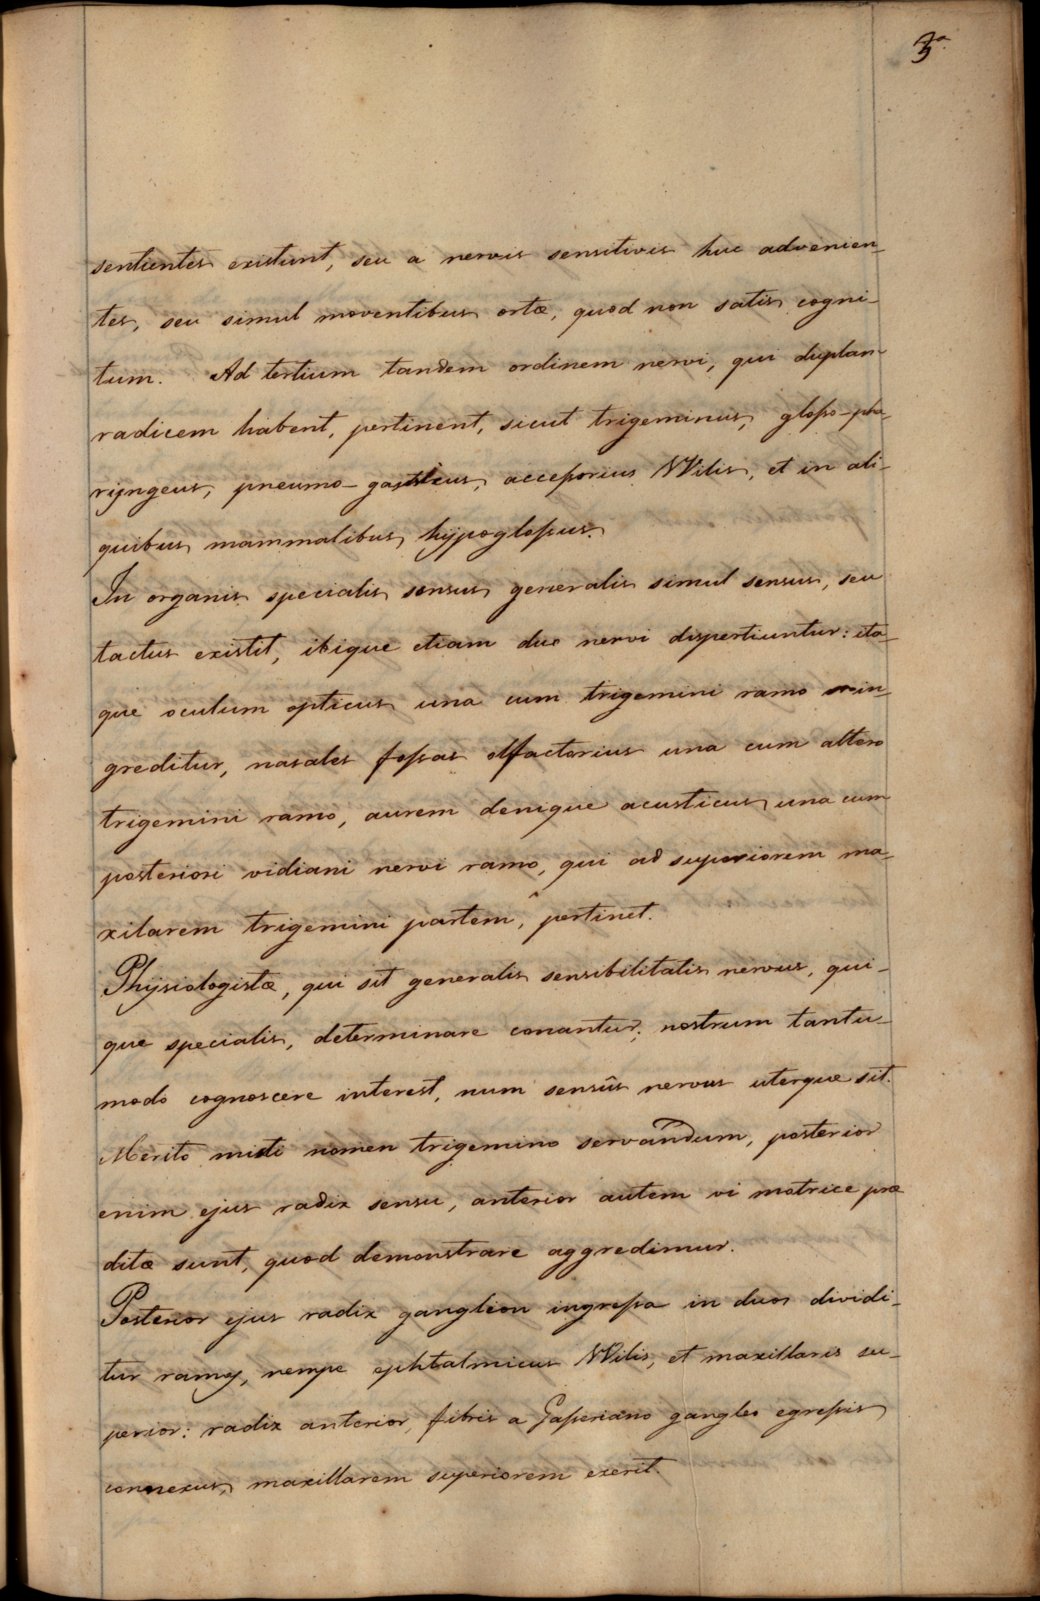 3ª
sentientes existunt, seu a nervis sensitivis huc advenien-
tes, seu simul moventibus ortæ, quod non satis cogni-
tum. Ad tertium tandem ordinem nervi, qui duplam
radicem habent, pertinent, sicut trigeminus, glosso-pha-
ryngeus, pneumo-gastricus, accessorius Wilis, et in ali-
quibus mammalibus hypoglossus.
In organis specialis sensus generalis simul sensus, seu
tactus existit, ibique etiam duo nervi dispertiuntur: ita-
que oculum opticus una cum trigemini ramo in-
greditur, nasales fossas olfactorius una cum altero
trigemini ramo, aurem denique acusticus una cum
posteriori vidiani nervi ramo, qui ad superiorem ma-
xilarem trigemini partem, pertinet.
Physiologistæ, qui sit generalis sensibilitatis nervus, qui-
que specialis, determinare conantur; nostrum tantu-
modo cognoscere interest, num sensûs nervus uterque sit.
Merito misti nomen trigemino servandum, posterior
enim ejus radix sensu, anterior autem vi motrice præ
ditæ sunt, quod demonstrare aggredimur.
Posterior ejus radix ganglion ingressa in duos dividi-
tur ramos, nempe ophtalmicus Wilis, et maxillaris su-
perior: radix anterior, fibris a Gasseriano ganglio egressis
connexus, maxillarem superiorem exerit.